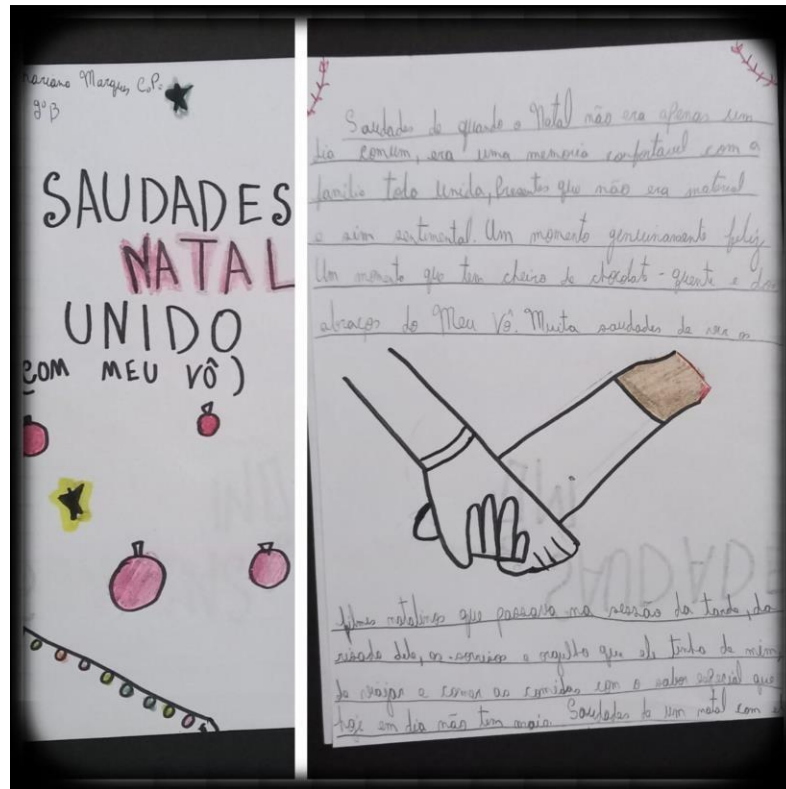 Mariana Marques C.P.
9ºB
SAUDADES
NATAL
UNIDO
COM MEU VÔ)
Saudades de quando o Natal não era apenas um
dia comum, era uma memoria confortavel com a
familia toda unida, Presentes que não era material
e sim sentimental. Um momento genuinamente feliz
Um momento que tem cheiro de chocolate-quente e dos
abraços do Meu Vô. Muita saudades de ver os
filmes natalinos que passava na sessão da tarde, da
risada dele, os sorrisos e orgulho que ele tinha de mim,
de viajar e comer as comidas com o sabor especial que
hoje em dia não tem mais. Saudades de um natal com